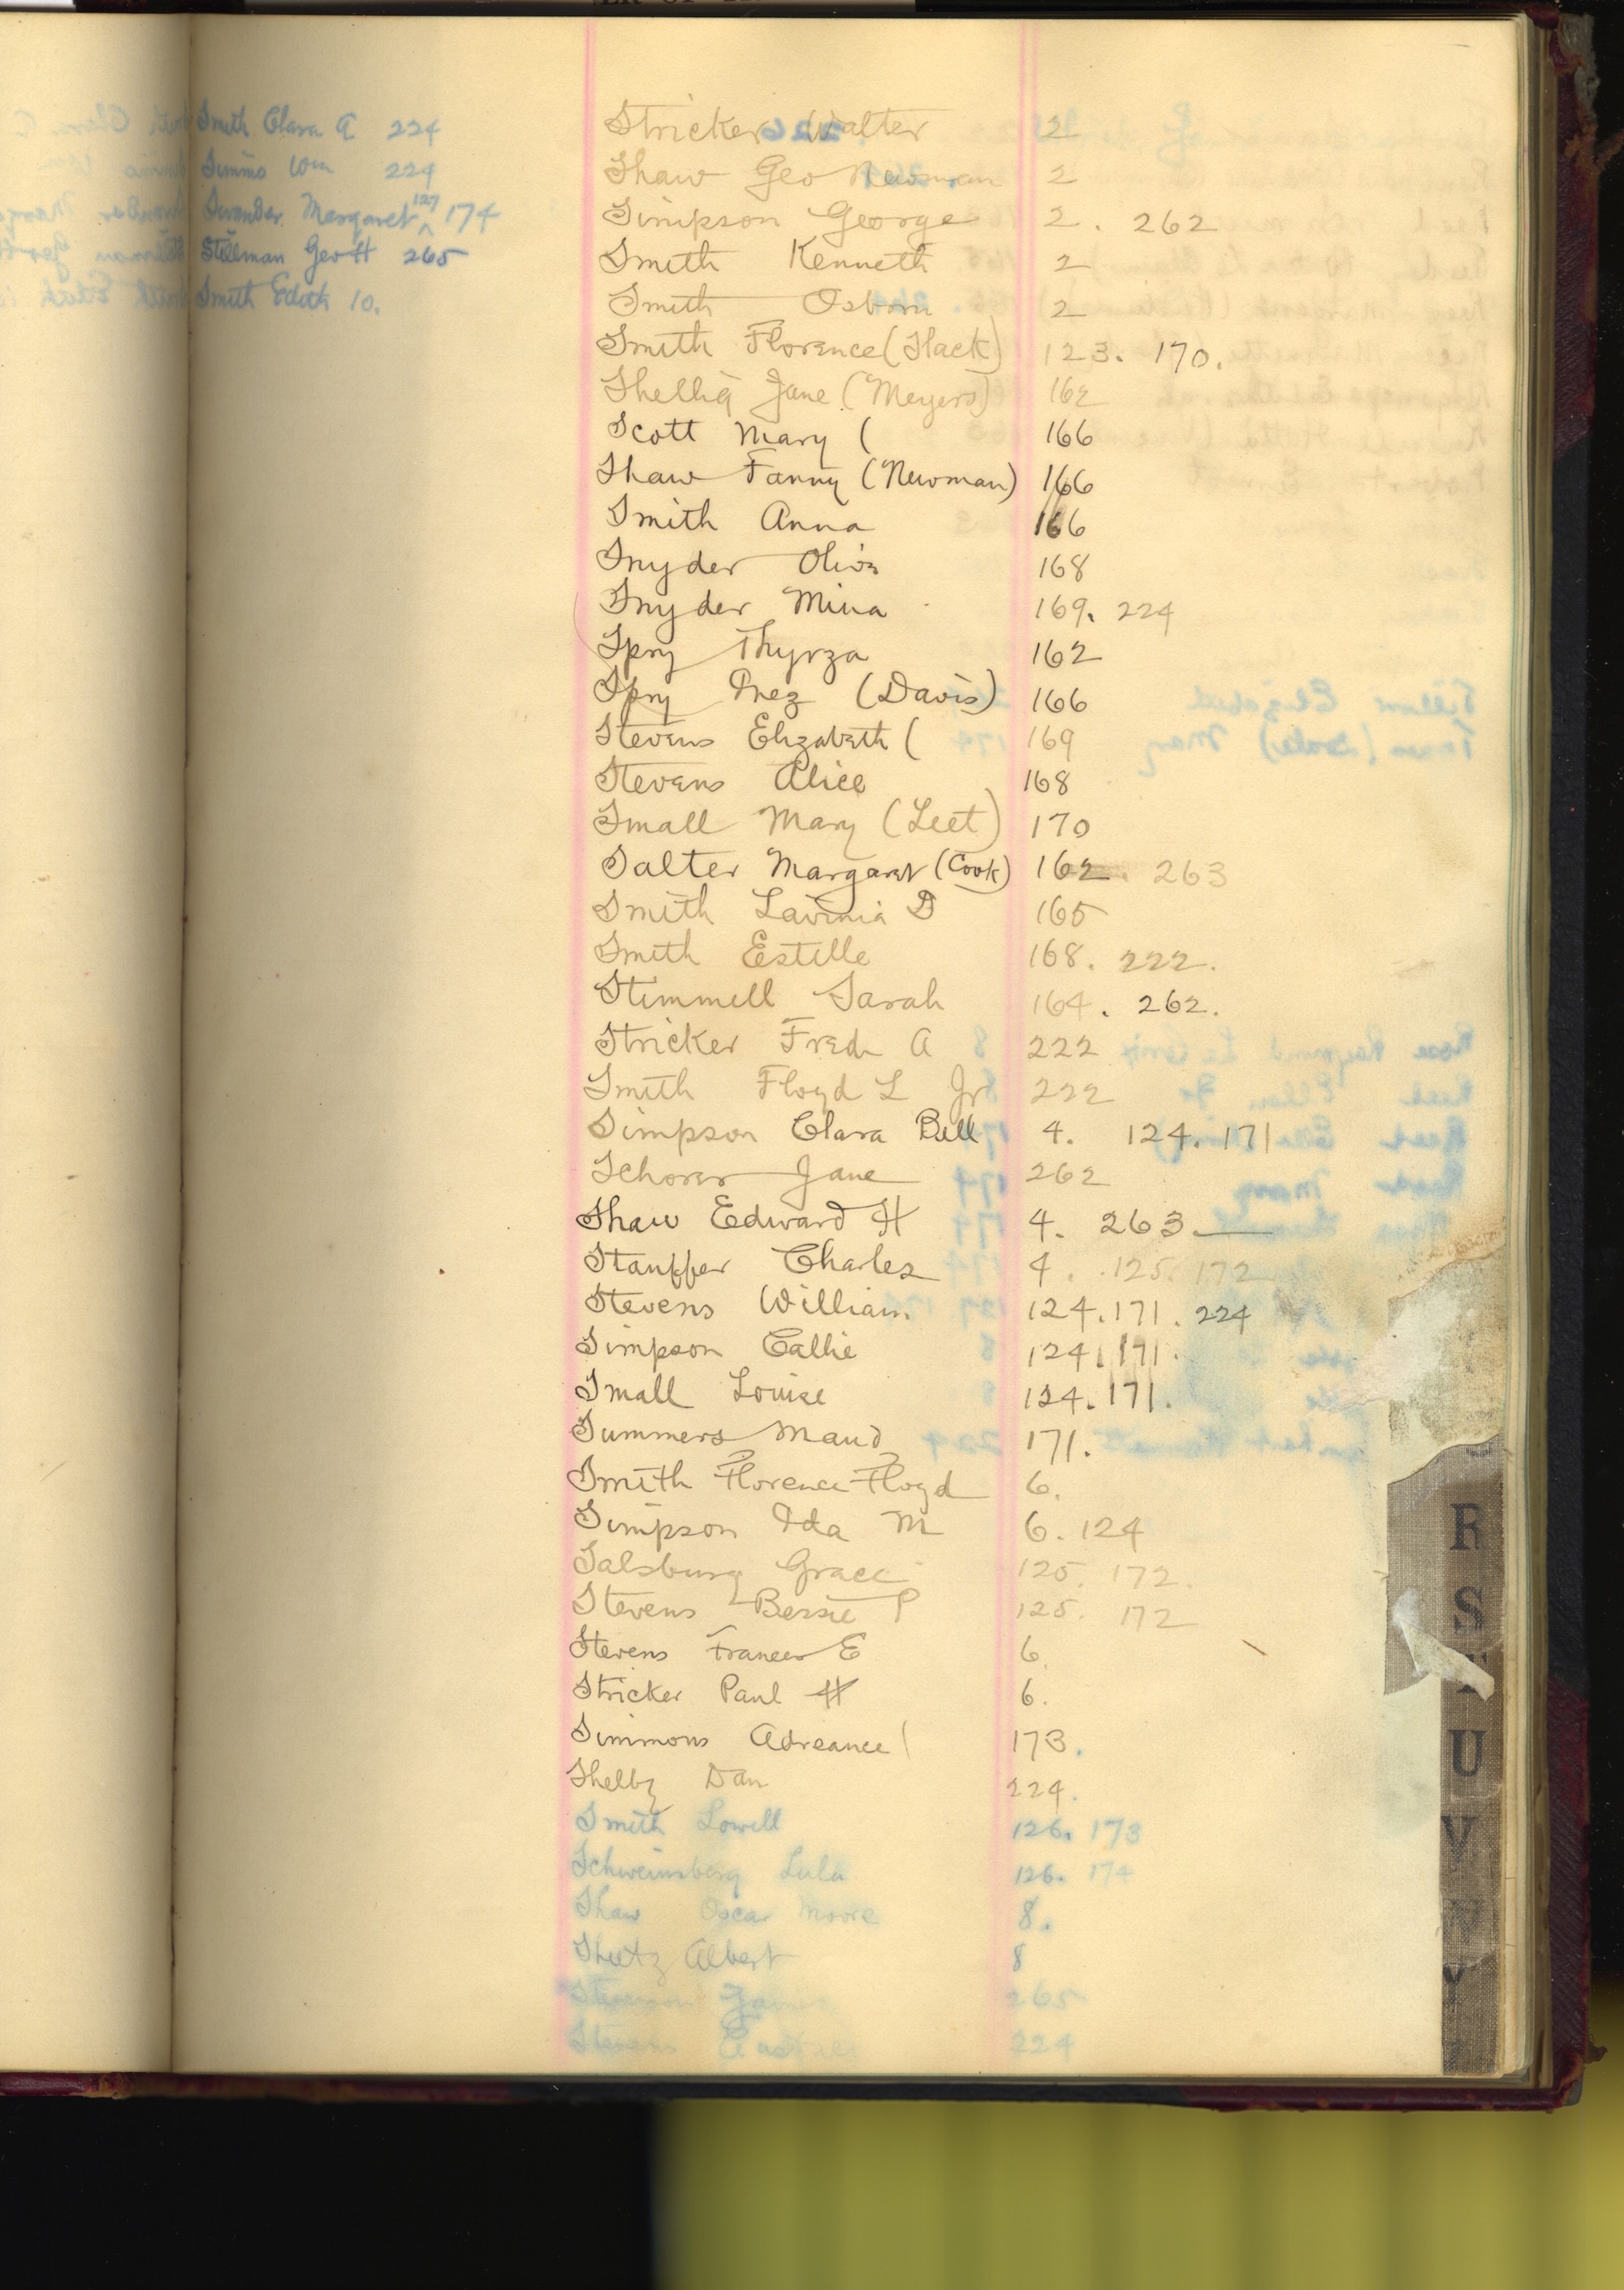 Smith Clara A 224
Simms Wm 224
Swander Margaret 127 174
Stillman Geo H 265
Smith Edith 10.
Stricker Walter 2
Shaw Geo Newman 2
Simpson George 2. 262
Smith Kenneth 2
Smith Osborn 2
Smith Florence (Slack) 123. 170.
Shellig Jane (Meyers) 162
Scott Mary ( 166
Shaw Fanny (Newman) 166
Smith Anna 166
Snyder Olive 168
Snyder Mina 169. 224
Spry Thyrza 162
Spry Inez (Davis) 166
Stevens Elizabeth ( 169
Stevens Alice 168
Small Mary (Leet) 170
Salter Margaret (Cook) 162. 263
Smith Lavinia D 165
Smith Estelle 168. 222.
Stimmell Sarah 164. 262.
Stricker Fred A 222
Smith Floyd L Jr 222
Simpson Clara Bell 4. 124. 171
Schorer Jane 262
Shaw Edward H 4. 263
Stauffer Charles 4. 125. 172
Stevens William 124. 171. 224
Simpson Callie 124. 171.
Small Louise 124. 171.
Summers Maud 171.
Smith Florence Floyd 6.
Simpson Ida M 6. 124
Salsburg Grace 125. 172.
Stevens Bessie P 125. 172
Stevens Frances E 6.
Stricker Paul H 6.
Simmons Adreance ( 173.
Shelby Dan 224.
Smith Lowell 126. 173
Schweinsberg Lulu 126. 174
Shaw Oscar Moore 8.
Shutz Albert 8
James 265
Stevens 224
R
S
T
U
V
W
Y